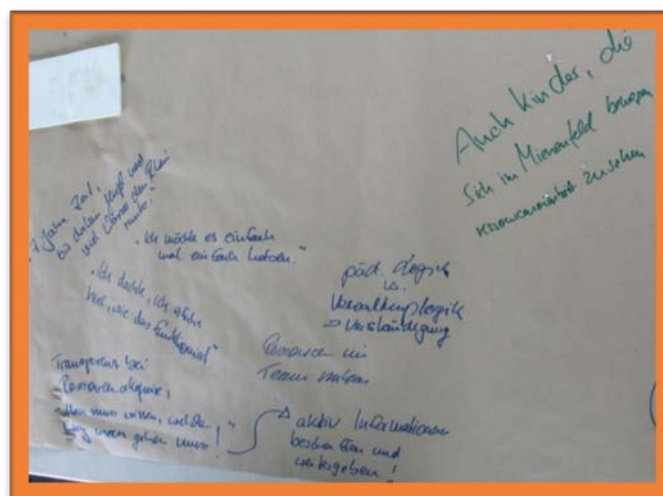 Auch Kinder, die
sich im Minenfeld bewegen
ressourcenorientiert zu sehen
"7 Jahre Zeit,
bis dahin fließt noch
viel Wasser den Rhein
runter."
"Ich möchte es einfach
mal einfach haben."
"Ich dachte, ich erfahre
hier, wie das funktioniert"
päd. Logik
vs.
Verwaltungslogik
→ Verständigung
Ressourcen im
Team nutzen
Transparenz bei
Ressourcenakquise,
"Man muss wissen, welchen
Weg man gehen muss!"
→ aktiv Informationen
beschaffen und
weitergeben!